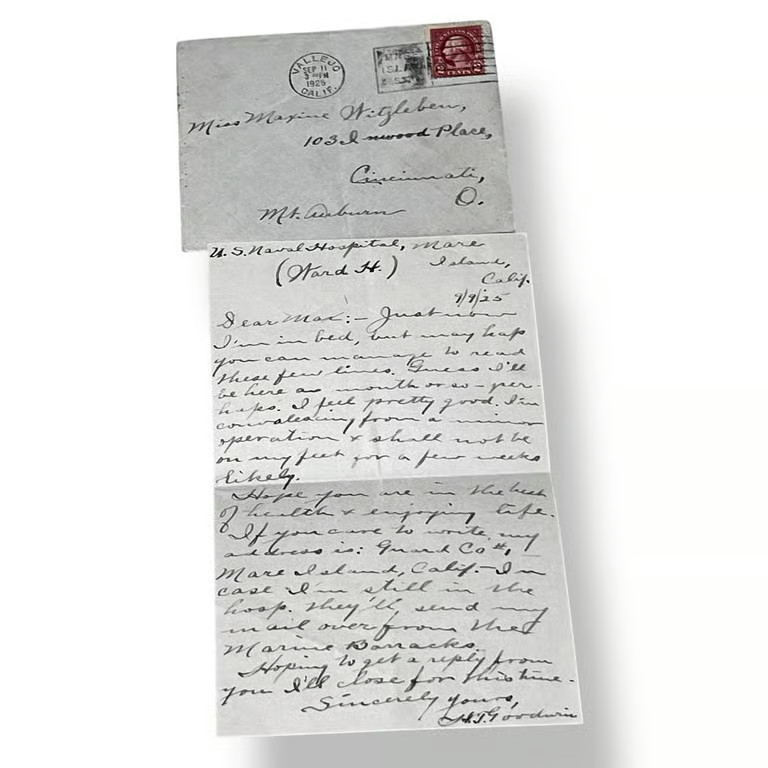 VALLEJO
SEP 11
3 PM
1925
CALIF.
CENTS
Miss Maxine Witzleben,
103 Inwood Place,
Cincinnati,
O.
Mt. Auburn
U.S. Naval Hospital, Mare
(Ward H.) Island,
Calif.
9/9/25
Dear Max:- Just now
I'm in bed, but may hap
you can manage to read
these few lines. Guess I'll
be here a month or so - per-
haps. I feel pretty good. I'm
convalescing from a minor
operation & shall not be
on my feet for a few weeks
likely.
Hope you are in the best
of health & enjoying life.
If you care to write, my
address is: Guard Co #1,
Mare Island, Calif. - In
case I'm still in the
hosp. they'll send my
mail over from the
Marine Barracks.
Hoping to get a reply from
you I'll close for this time.
Sincerely yours,
H.T. Goodwin